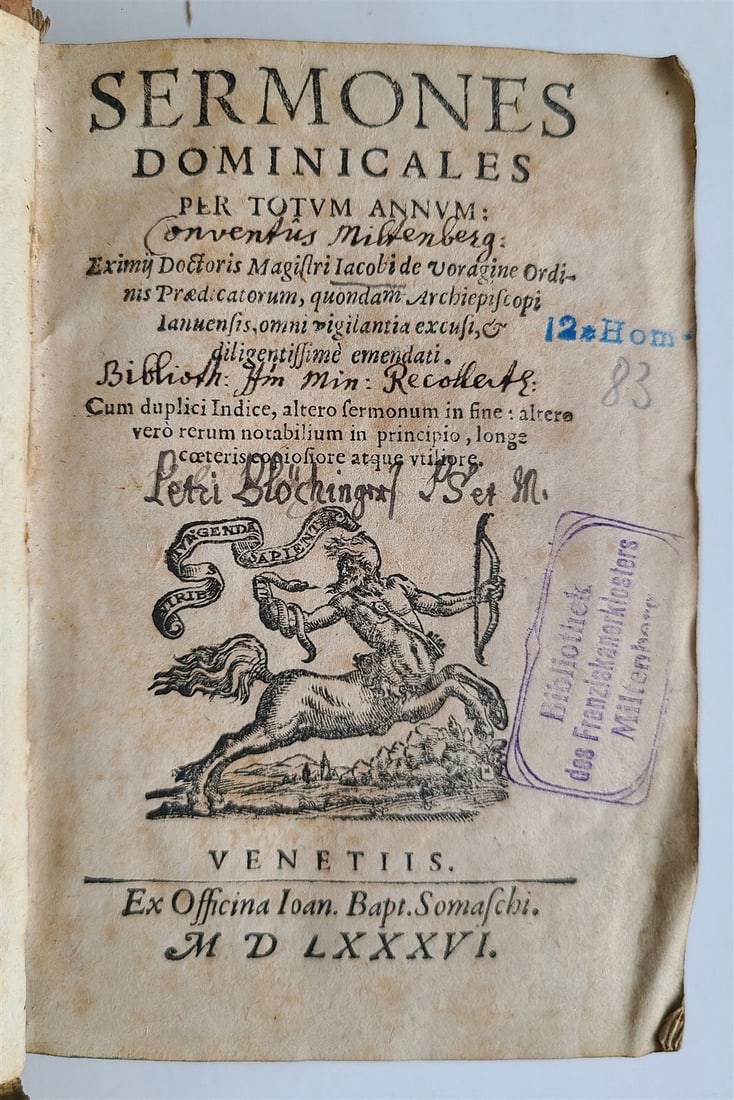 SERMONES
DOMINICALES
PER TOTVM ANNVM:
Conventûs Miltenberg:
Eximij Doctoris Magiſtri Iacobi de Voragine Ordi-
nis Prædicatorum, quondam Archiepiſcopi
Ianuenſis, omni vigilantia excuſi, &
diligentiſſimè emendati.
12* Hom
83
Biblioth: Min: Recollect:
Cum duplici Indice, altero ſermonum in fine: altero
verò rerum notabilium in principio, longe
cæteris copioſiore atque vtiliore.
Petri SS et M.
VIRIB
IVNGENDA
SAPIENT
Bibliothek
des Franziskanerklosters
Miltenberg
VENETIIS.
Ex Officina Ioan. Bapt. Somaſchi.
M D LXXXVI.